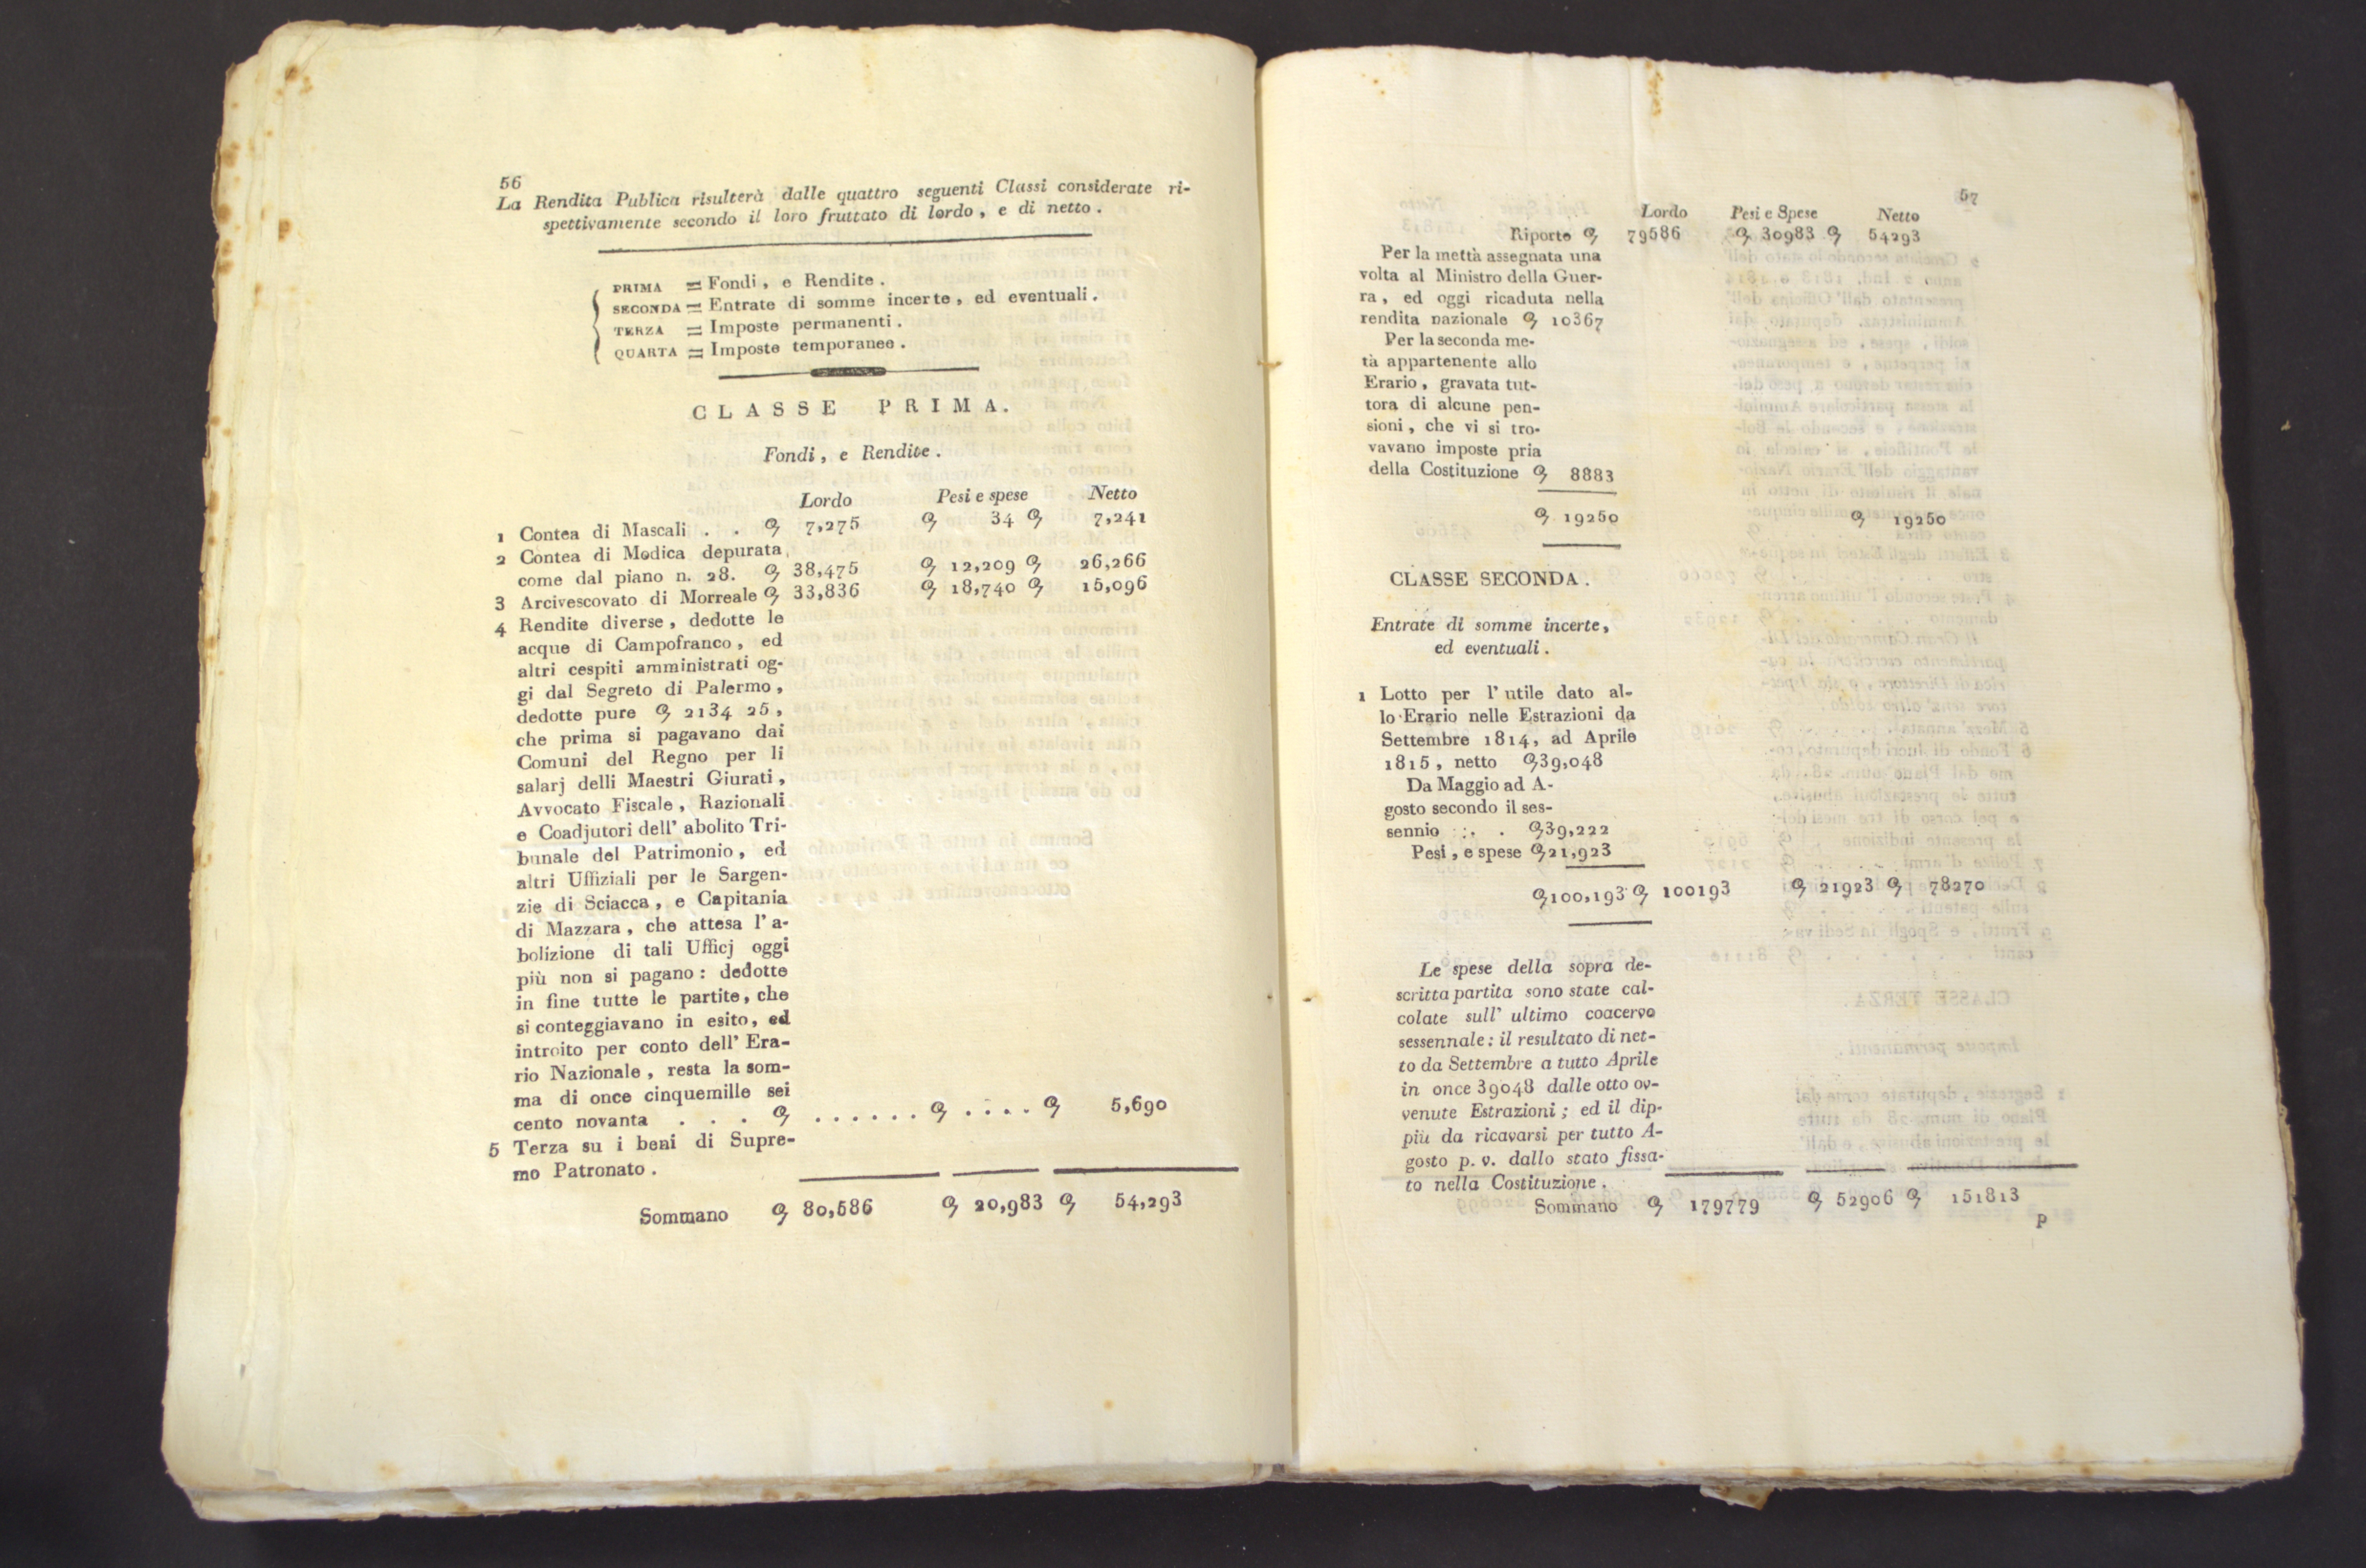 56
La Rendita Publica risulterà dalle quattro seguenti Classi considerate ri-
spettivamente secondo il loro fruttato di lordo, e di netto.
PRIMA = Fondi, e Rendite.
SECONDA = Entrate di somme incerte, ed eventuali.
TERZA = Imposte permanenti.
QUARTA = Imposte temporanee.
CLASSE PRIMA.
Fondi, e Rendite.
Lordo Pesi e spese Netto
1 Contea di Mascali . . 7,275 34 7,241
2 Contea di Modica depurata
come dal piano n. 28. 38,475 12,209 26,266
3 Arcivescovato di Morreale 33,836 18,740 15,096
4 Rendite diverse, dedotte le
acque di Campofranco, ed
altri cespiti amministrati og-
gi dal Segreto di Palermo,
dedotte pure 2134 25,
che prima si pagavano dai
Comuni del Regno per li
salarj delli Maestri Giurati,
Avvocato Fiscale, Razionali
e Coadjutori dell' abolito Tri-
bunale del Patrimonio, ed
altri Uffiziali per le Sargen-
zie di Sciacca, e Capitania
di Mazzara, che attesa l' a-
bolizione di tali Ufficj oggi
più non si pagano: dedotte
in fine tutte le partite, che
si conteggiavano in esito, ed
introito per conto dell' Era-
rio Nazionale, resta la som-
ma di once cinquemille sei
cento novanta . . . . . . . . . . . . . 5,690
5 Terza su i beni di Supre-
mo Patronato.
Sommano 80,586 20,983 54,293
57
Lordo Pesi e Spese Netto
Riporto 79586 30983 54293
Per la mettà assegnata una
volta al Ministro della Guer-
ra, ed oggi ricaduta nella
rendita nazionale 10367
Per la seconda me-
tà appartenente allo
Erario, gravata tut-
tora di alcune pen-
sioni, che vi si tro-
vavano imposte pria
della Costituzione 8883
19250 19250
CLASSE SECONDA.
Entrate di somme incerte,
ed eventuali.
1 Lotto per l' utile dato al-
lo Erario nelle Estrazioni da
Settembre 1814, ad Aprile
1815, netto 39,048
Da Maggio ad A-
gosto secondo il ses-
sennio . . 39,222
Pesi, e spese 21,923
100,193 100193 21923 78270
Le spese della sopra de-
scritta partita sono state cal-
colate sull' ultimo coacervo
sessennale: il resultato di net-
to da Settembre a tutto Aprile
in once 39048 dalle otto ov-
venute Estrazioni; ed il dip-
più da ricavarsi per tutto A-
gosto p. v. dallo stato fissa-
to nella Costituzione.
Sommano 179779 52906 151813
P